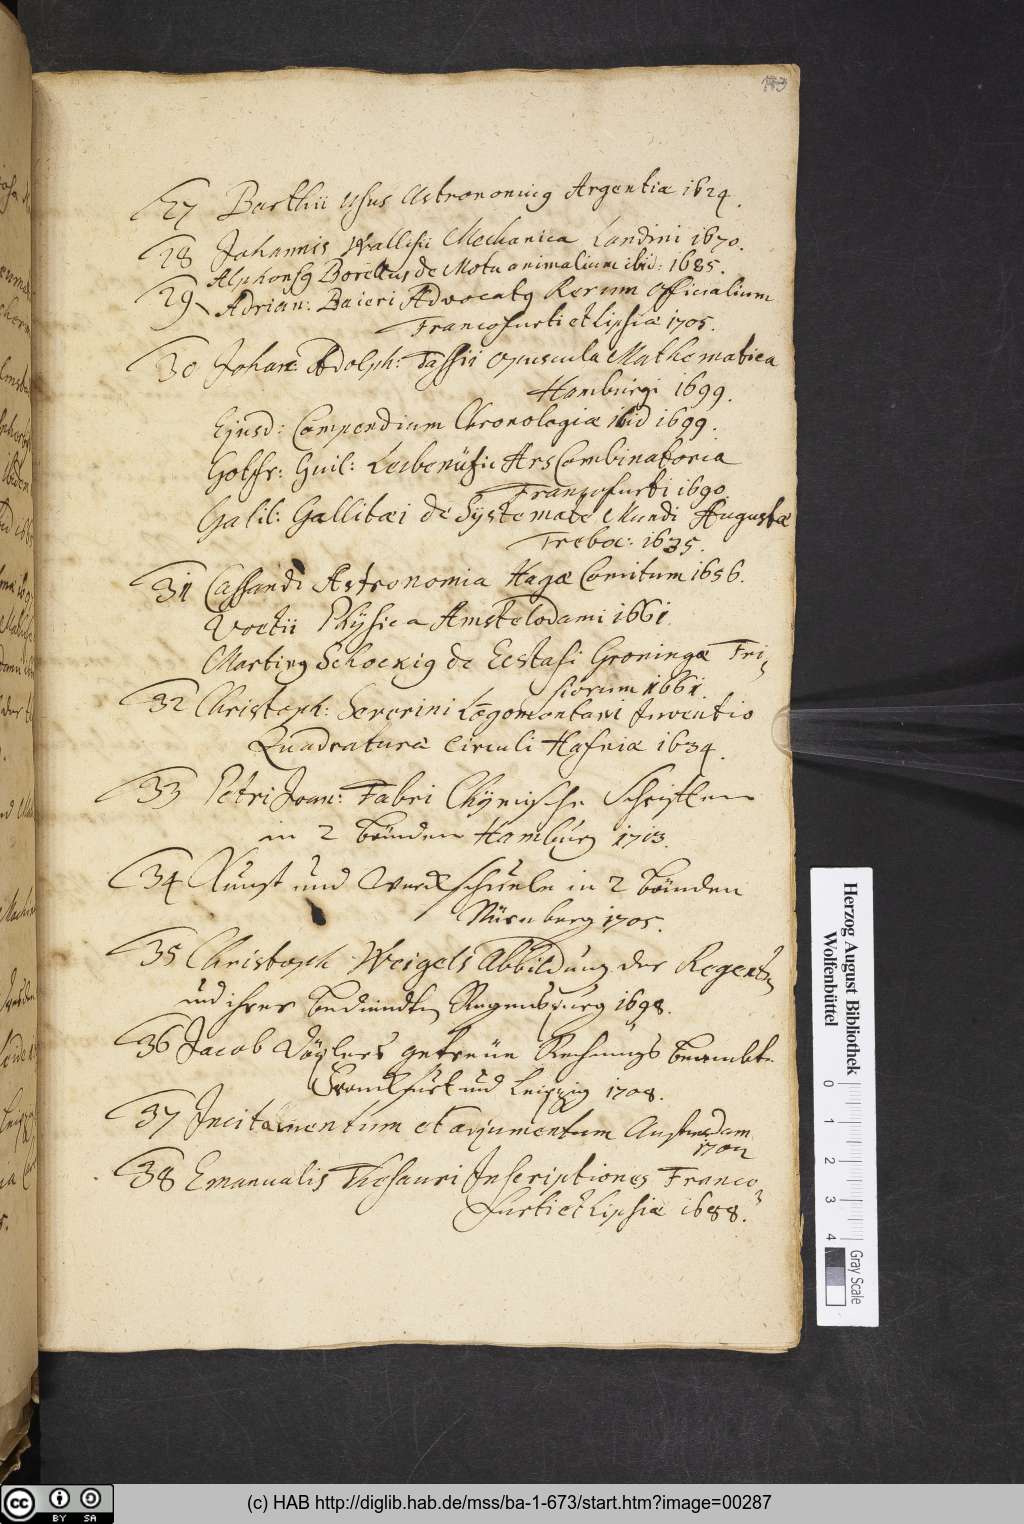 173
27 Barthii Usus Astronomicus Argentiæ 1624.
28 Johannis Wallisii Mechanica Londini 1670.
Alphonsus Borellus de Motu animalium ibid: 1685.
29 Adrian: Baieri Advocatus Rerum Officialium
Francofurti et Lipsiæ 1705.
30 Johan: Adolph: Tassii opuscula Mathematica
Hamburgi 1699.
Ejusd: Compendium Chronologiæ ibid 1699.
Gotfr: Guil: Leibenüzii Ars Combinatoria
Francofurti 1690.
Galil: Gallilæi de Systemate Mundi Augustæ
Treboc: 1635.
31 Cassendi Astronomia Hagæ Comitum 1656.
Voetii Physica Amstelodami 1661.
Martinus Schockius de Ecstasi Groningæ Fri-
siorum 1661.
32 Christoph: Severini Longomontani Inventio
Quadraturæ Circuli Hafniæ 1634.
33 Petri Joan: Fabri Chymische Schrifften
in 2 bänden Hamburg 1713.
34 Kunst und Werckschuele in 2 bänden
Nürnberg 1705.
35 Christoph Weigels Abbildung der Regenten
und ihrer bedienten Regenspurg 1698.
36 Jacob Vöglers getreüe Rechnungs beambte
Franckfurt und Leipzig 1708.
37 Incitamentum et argumentum Amsterdam
38 Emanualis Thesauri Inscriptiones Franco-
furti et Lipsiæ 1688.
Herzog August Bibliothek
Wolfenbüttel
0 1 2 3 4
Gray Scale
cc BY SA
(c) HAB http://diglib.hab.de/mss/ba-1-673/start.htm?image=00287